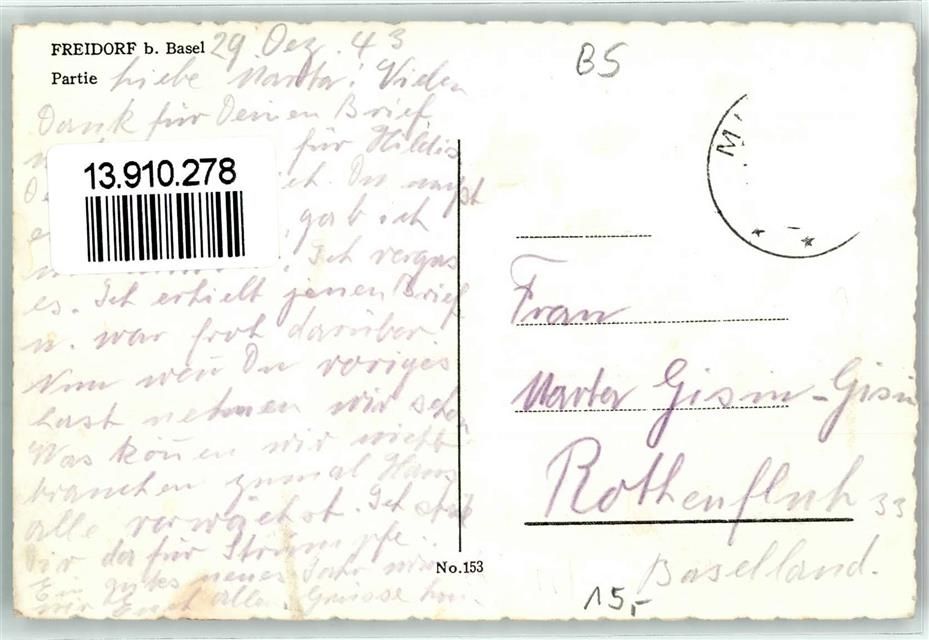 FREIDORF b. Basel 29. Dez. 43
Partie Liebe Marta! Vielen
Dank für Deinen Brief
für Hildis
Du
gab ich
Ich vergas
es. Ich erhielt jenen Brief
u. war froh darüber.
Nun wen Du voriges
hast nehmen wir schon
Was könen wir nicht
brauchen zumal Hans
alle verwächst. Ich
Dir dafür Strümpfe.
Ein gutes neues Jahr
wir Euch allen. Grüsse
13.910.278
BS
M
Frau
Marta Gisin-Gisin
Rothenfluh 33
Baselland.
No. 153
15,-